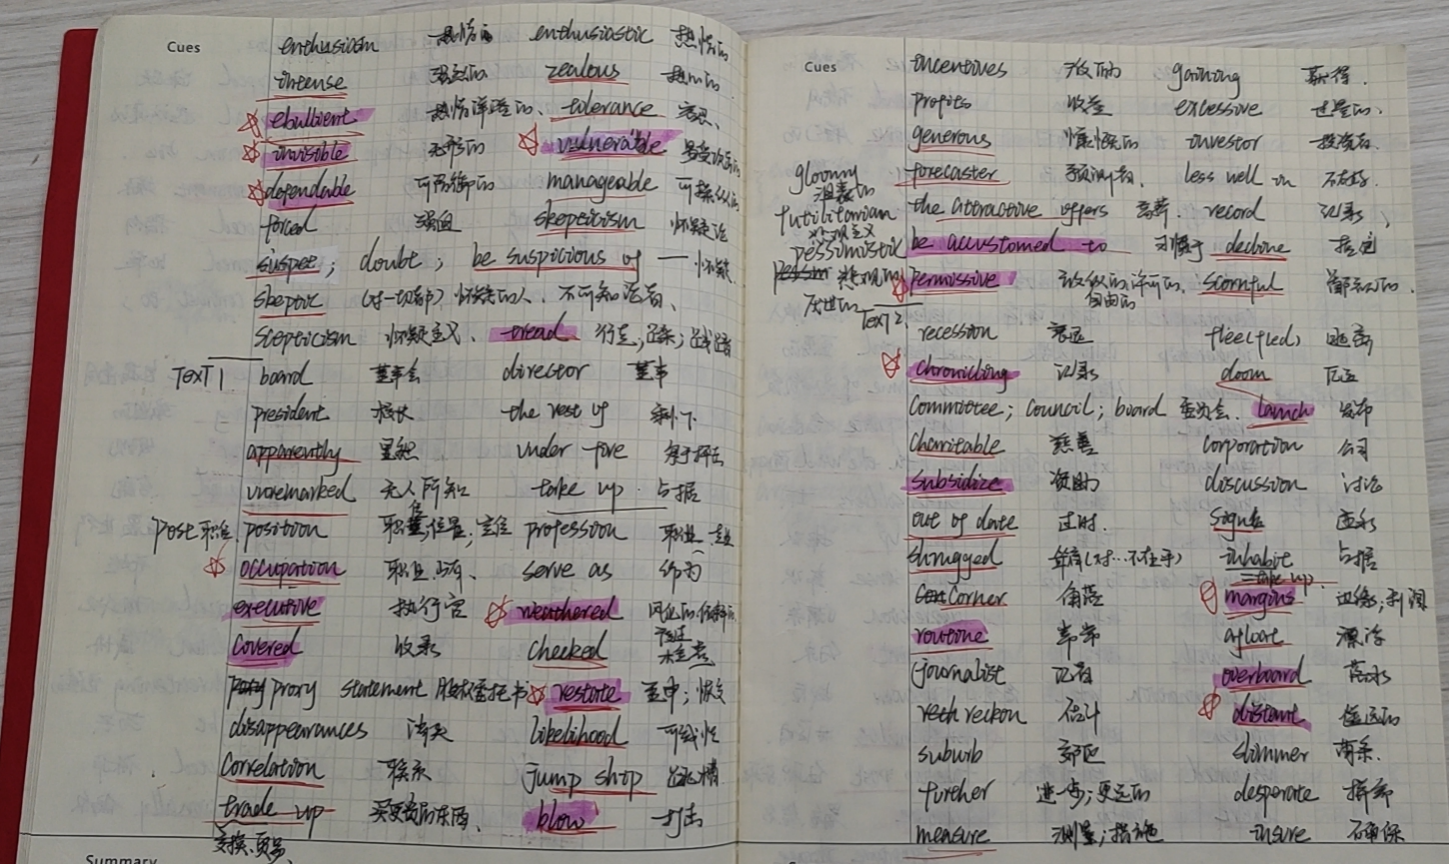 Cues
enthusiasm 热情 enthusiastic 热情的
intense 强烈的 zealous 热心的
ebullient 热情洋溢的 tolerance 容忍
invisible 无形的 vulnerable 易受攻击的
dependable 可信赖的 manageable 可操纵的
forced 强迫 skepticism 怀疑论
suspect; doubt; be suspicious of — 怀疑
skeptic (对一切都)怀疑的人、不可知论者、
scepticism 怀疑主义、tread 行走,踩;践踏
TexT 1 board 董事会 director 董事
president 校长 the rest of 剩下
apparently 显然 under fire
unremarked 无人所知 take up 占据
post 职位 position 职位,位置; profession 职业
occupation 职业 serve as 作为
executive 执行官 weathered
covered 收录 checked
proxy statement 股权委托书 restate 重申;恢复
disappearances 消失 likelihood 可能性
Correlation 联系 jump shop 跳槽
trade up 买更贵的东西、 blow 打击
交换、贸易、
Summary
Cues
incentives gaining 获得.
profits 收益 excessive 过量的.
generous 慷慨的 investor 投资者.
gloomy forecaster 预测者、 less well on 不太好.
futilitarian the attractive offers 高薪. record 记录
pessimistic 悲观的 be accustomed to 习惯于 decline
厌世的 permissive 放纵的,许可的、自由的 scornful 鄙视的.
TexT 2.
recession 衰退 flee(fled) 逃离
chronicling 记录 doom 厄运
Committee; council; board 委员会、launch 发布
charitable 慈善 corporation 公司
subsidize 资助 discussion 讨论
out of date 过时. signals
shrugged 耸肩(对…不在乎) inhabit 占据
= take up
Corner 角落 margins 边缘;利润
routine 常常 afloat 漂浮
journalist 记者 overboard 落水
reckon 估计 distant 遥远的
suburb 郊区 slimmer
further 进一步;更远的 desperate
measure 测量;措施 insure 确保